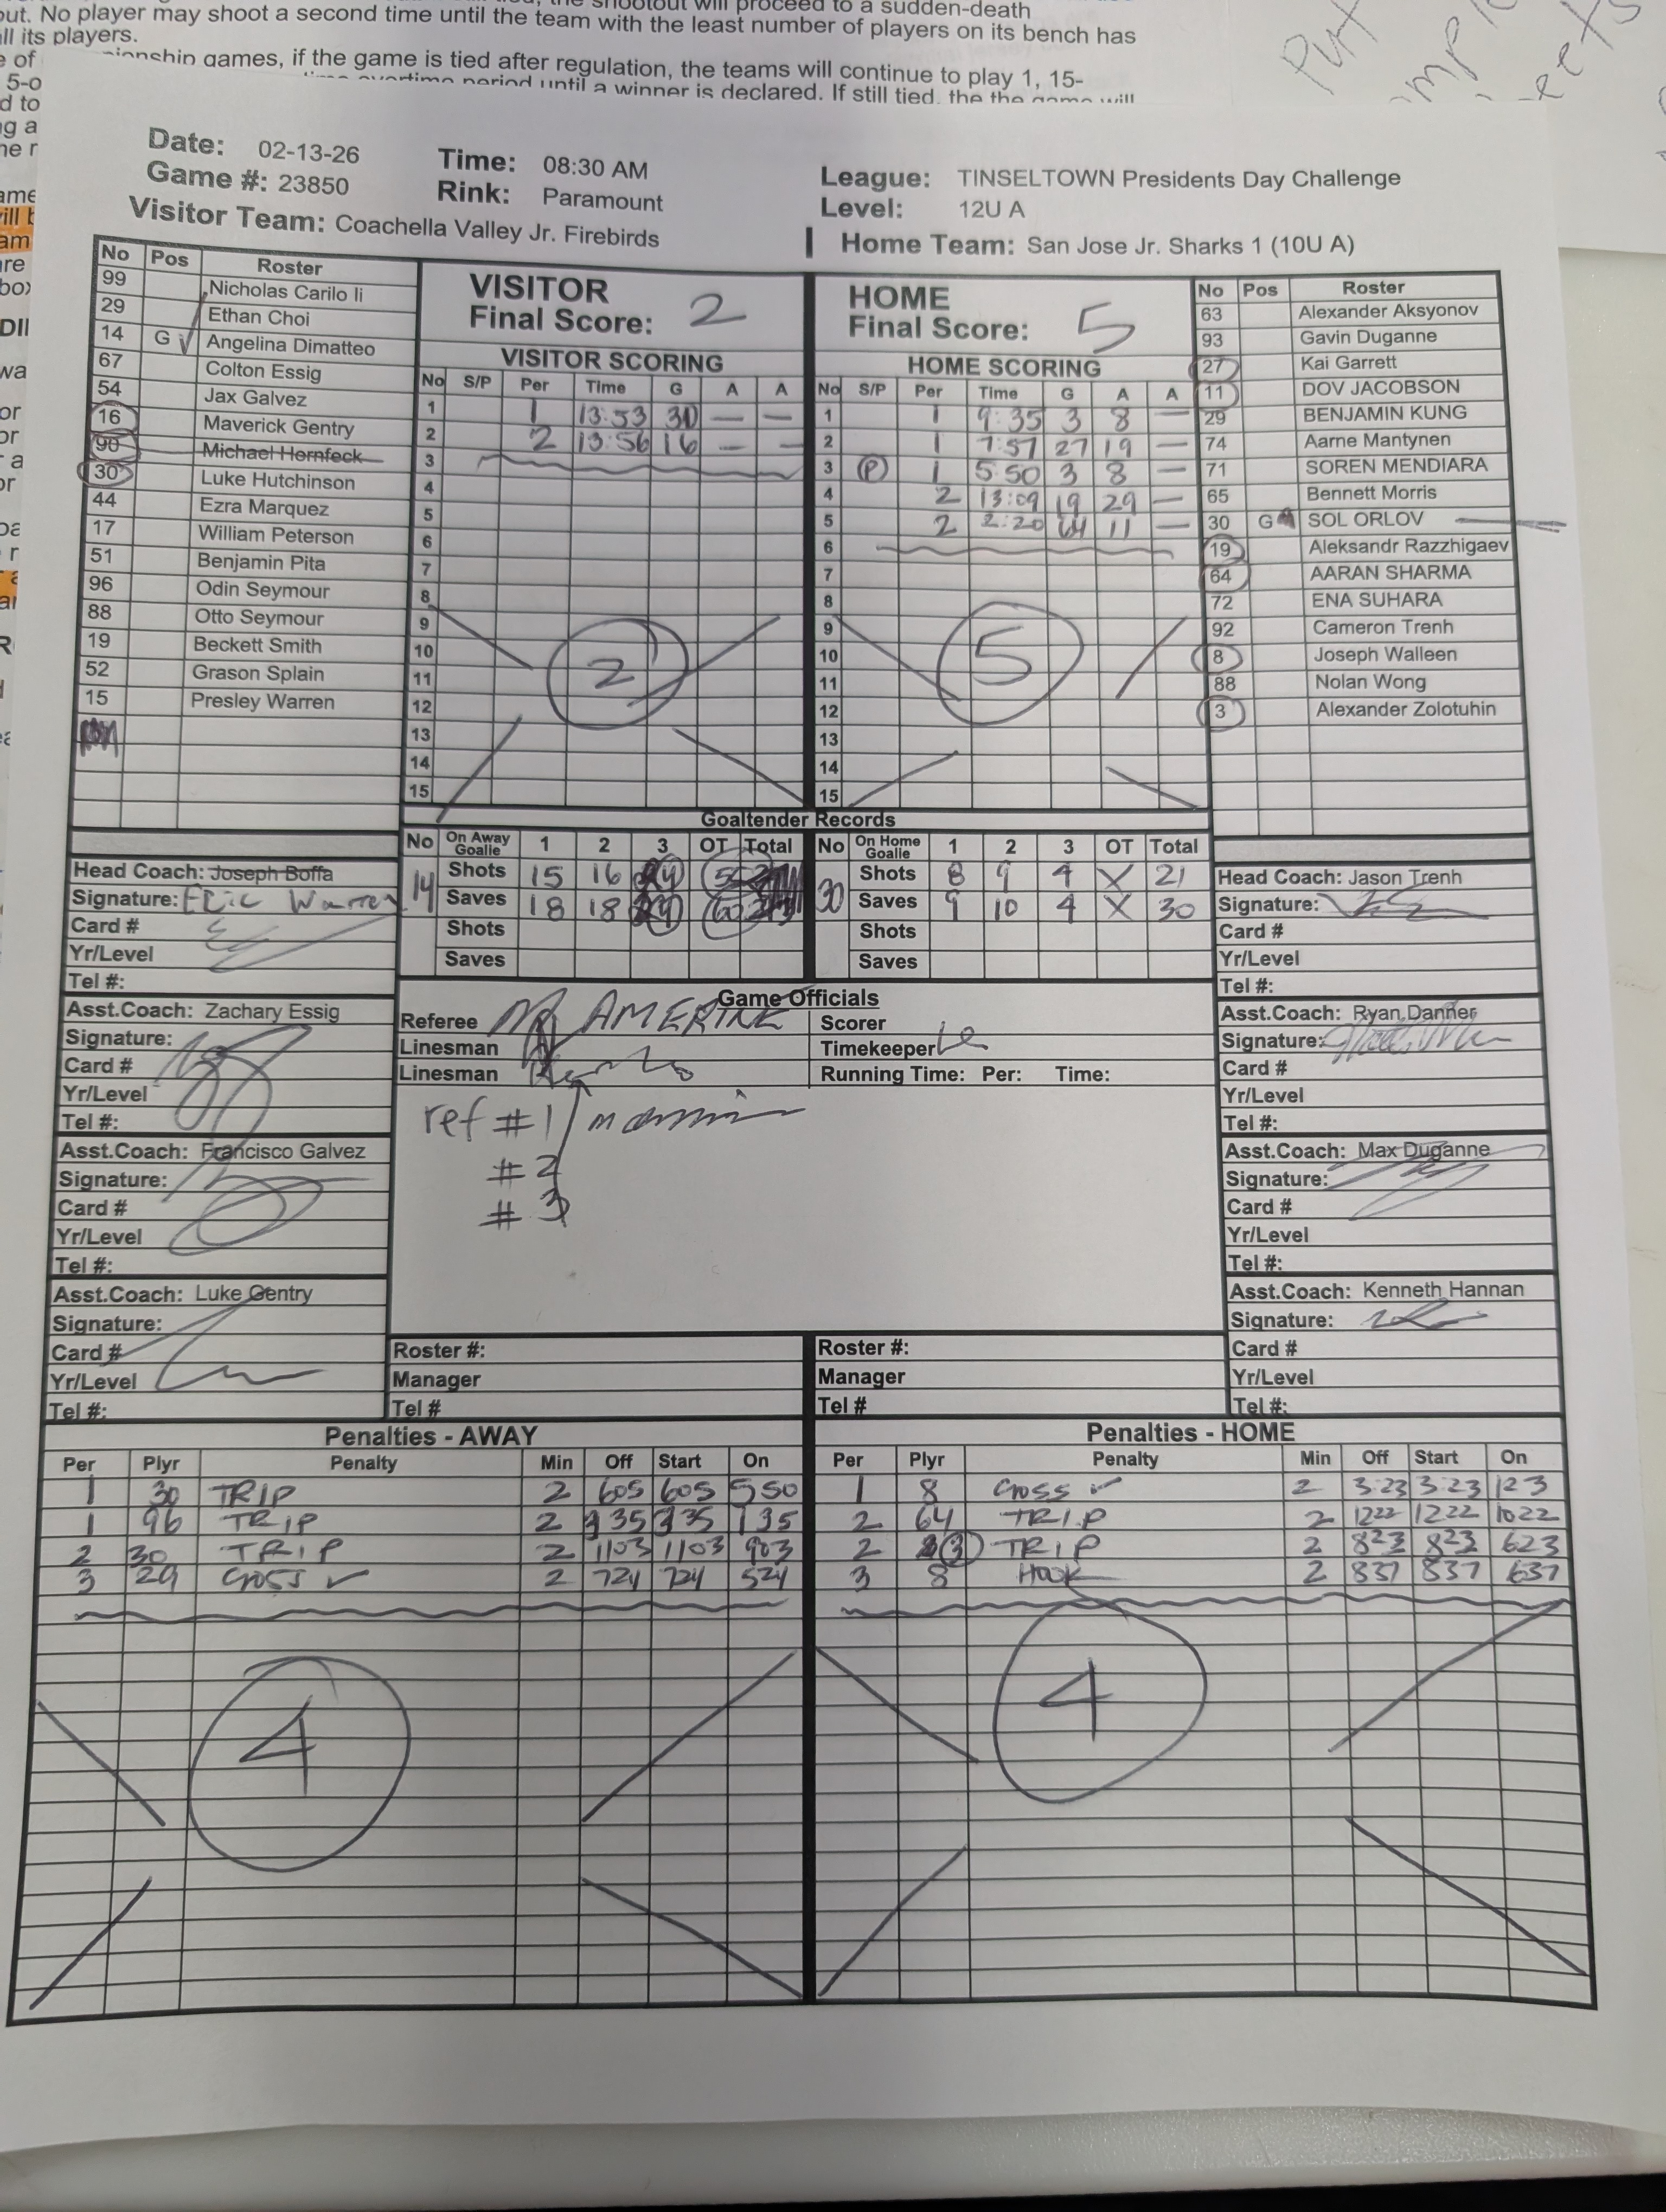 out. No player may shoot a second time until the team with the least number of players on its bench has
all its players.
ionship games, if the game is tied after regulation, the teams will continue to play 1, 15-
overtime period until a winner is declared. If still tied, the the game will
Date: 02-13-26
Game #: 23850
Time: 08:30 AM
Rink: Paramount
League: TINSELTOWN Presidents Day Challenge
Level: 12U A
Visitor Team: Coachella Valley Jr. Firebirds
Home Team: San Jose Jr. Sharks 1 (10U A)
No Pos Roster
99 Nicholas Carilo Ii
29 Ethan Choi
14 G Angelina Dimatteo
67 Colton Essig
54 Jax Galvez
16 Maverick Gentry
90 Michael Hernfeck
30 Luke Hutchinson
44 Ezra Marquez
17 William Peterson
51 Benjamin Pita
96 Odin Seymour
88 Otto Seymour
19 Beckett Smith
52 Grason Splain
15 Presley Warren
VISITOR
Final Score: 2
VISITOR SCORING
No S/P Per Time G A A
1 1 13:53 30 — —
2 2 13:56 16 — —
3
4
5
6
7
8
9
10
11
12
13
14
15
2
HOME
Final Score: 5
HOME SCORING
No S/P Per Time G A A
1 1 9:35 3 8 —
2 1 7:57 27 19 —
3 P 1 5:50 3 8 —
4 2 13:09 19 29 —
5 2 2:20 64 11 —
6
7
8
9
10
11
12
13
14
15
5
No Pos Roster
63 Alexander Aksyonov
93 Gavin Duganne
27 Kai Garrett
11 DOV JACOBSON
29 BENJAMIN KUNG
74 Aarne Mantynen
71 SOREN MENDIARA
65 Bennett Morris
30 G SOL ORLOV
19 Aleksandr Razzhigaev
64 AARAN SHARMA
72 ENA SUHARA
92 Cameron Trenh
8 Joseph Walleen
88 Nolan Wong
3 Alexander Zolotuhin
Goaltender Records
No On Away Goalie 1 2 3 OT Total
14 Shots 15 16
Saves 18 18
Shots
Saves
No On Home Goalie 1 2 3 OT Total
30 Shots 8 9 4 X 21
Saves 9 10 4 X 30
Shots
Saves
Head Coach: Joseph Boffa
Signature: Eric Warren
Card #
Yr/Level
Tel #:
Asst.Coach: Zachary Essig
Signature:
Card #
Yr/Level
Tel #:
Asst.Coach: Francisco Galvez
Signature:
Card #
Yr/Level
Tel #:
Asst.Coach: Luke Gentry
Signature:
Card #
Yr/Level
Tel #:
Game Officials
Referee
Linesman
Linesman
Scorer
Timekeeper
Running Time: Per: Time:
ref #1
#2
#3
Roster #:
Manager
Tel #
Roster #:
Manager
Tel #
Head Coach: Jason Trenh
Signature:
Card #
Yr/Level
Tel #:
Asst.Coach: Ryan Danner
Signature:
Card #
Yr/Level
Tel #:
Asst.Coach: Max Duganne
Signature:
Card #
Yr/Level
Tel #:
Asst.Coach: Kenneth Hannan
Signature:
Card #
Yr/Level
Tel #:
Penalties - AWAY
Per Plyr Penalty Min Off Start On
1 30 TRIP 2 605 605 550
1 96 TRIP 2 335 335 135
2 30 TRIP 2 1103 1103 903
3 29 CROSS ✓ 2 724 724 524
4
Penalties - HOME
Per Plyr Penalty Min Off Start On
1 8 CROSS ✓ 2 3:23 3:23 123
2 64 TRIP 2 1222 1222 1022
2 3 TRIP 2 823 823 623
3 8 HOOK 2 837 837 637
4